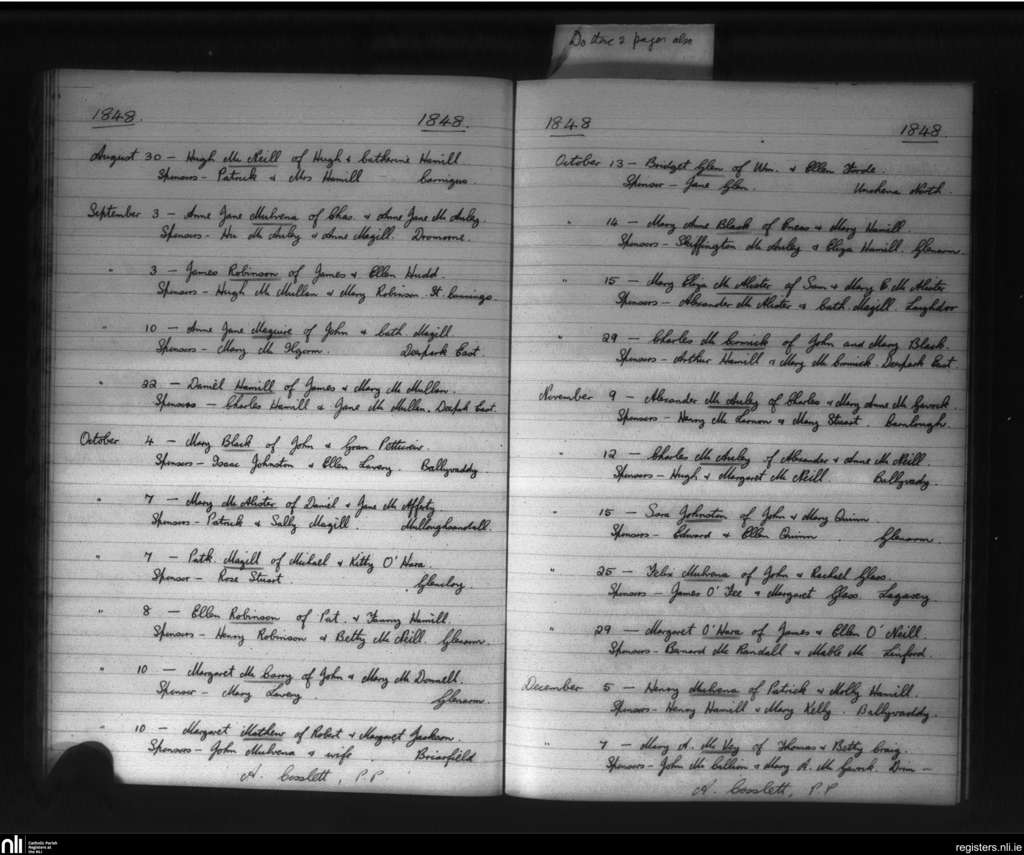 Do these 2 pages also
1848. 1848.
August 30 – Hugh Mc Neill of Hugh & Catherine Hamill
Sponsors – Patrick & Mrs Hamill Carnigus.
September 3 – Anne Jane Mulvena of Chas. & Anne Jane Mc Auley
Sponsors – Hu Mc Auley & Anne Magill.
" 3 – James Robinson of James & Ellen Hudd.
Sponsors – Hugh Mc Mullan & Mary Robinson St. Cunnings.
" 10 – Anne Jane Maguire of John & Cath. Magill.
Sponsors – Mary Mc Deerpark East.
" 22 – Daniel Hamill of James & Mary Mc Mullan.
Sponsors – Charles Hamill & Jane Mc Mullen. Deerpark East.
October 4 – Mary Black of John &
Sponsors – Isaac Johnston & Ellen Lavery. Ballyvaddy
" 7 – Mary Mc Alister of Daniel & Jane Mc
Sponsors – Patrick & Sally Magill
" 7 – Patk. Magill of Michael & Kitty O'Hara.
Sponsor – Rose Stuart Glencloy.
" 8 – Ellen Robinson of Pat. & Fanny Hamill.
Sponsors – Henry Robinson & Betty Mc Neill. Glenarm.
" 10 – Margaret Mc Garry of John & Mary Mc Donnell.
Sponsor – Mary Lavery Glenarm.
" 10 – Margaret Mathew of Robert & Margaret Jackson.
Sponsors – John Mulvena & wife. Briarfield
A. Cosslett, P.P
1848 1848.
October 13 – Bridget Glen of Wm. & Ellen Forde.
Sponsor – Jane Glen. Unshena North.
" 14 – Mary Anne Black of Eneas & Mary Hamill.
Sponsors – Skiffington Mc Auley & Eliza Hamill. Glenarm.
" 15 – Mary Eliza Mc Alister of Sam & Mary E. Mc Alister
Sponsors – Alexander Mc Alister & Cath. Magill.
" 29 – Charles Mc Cormick of John and Mary Black.
Sponsors – Arthur Hamill & Mary Mc Cormick. Deerpark East.
November 9 – Alexander Mc Auley of Charles & Mary Anne Mc Gavock.
Sponsors – Henry Mc Larnon & Mary Stuart. Carnlough.
" 12 – Charles Mc Auley of Alexander & Anne Mc Neill.
Sponsors – Hugh & Margaret Mc Neill. Ballyvady.
" 15 – Sara Johnston of John & Mary Quinn.
Sponsors – Edward & Ellen Quinn. Glenarm.
" 25 – Felix Mulvena of John & Rachael Glass.
Sponsors – James O'Fee & Margaret Glass. Lagavey
" 29 – Margaret O'Hara of James & Ellen O'Neill.
Sponsors – Bernard Mc Randall & Mable Mc Linford.
December 5 – Henry Mulvena of Patrick & Molly Hamill.
Sponsors – Henry Hamill & Mary Kelly. Ballyvaddy.
" 7 – Mary A. Mc Vey of Thomas & Betty Craig.
Sponsors – John Mc Cullion & Mary A. Mc Gavock. Drim –
A. Cosslett, P.P
nli Catholic Parish Registers at the NLI
registers.nli.ie